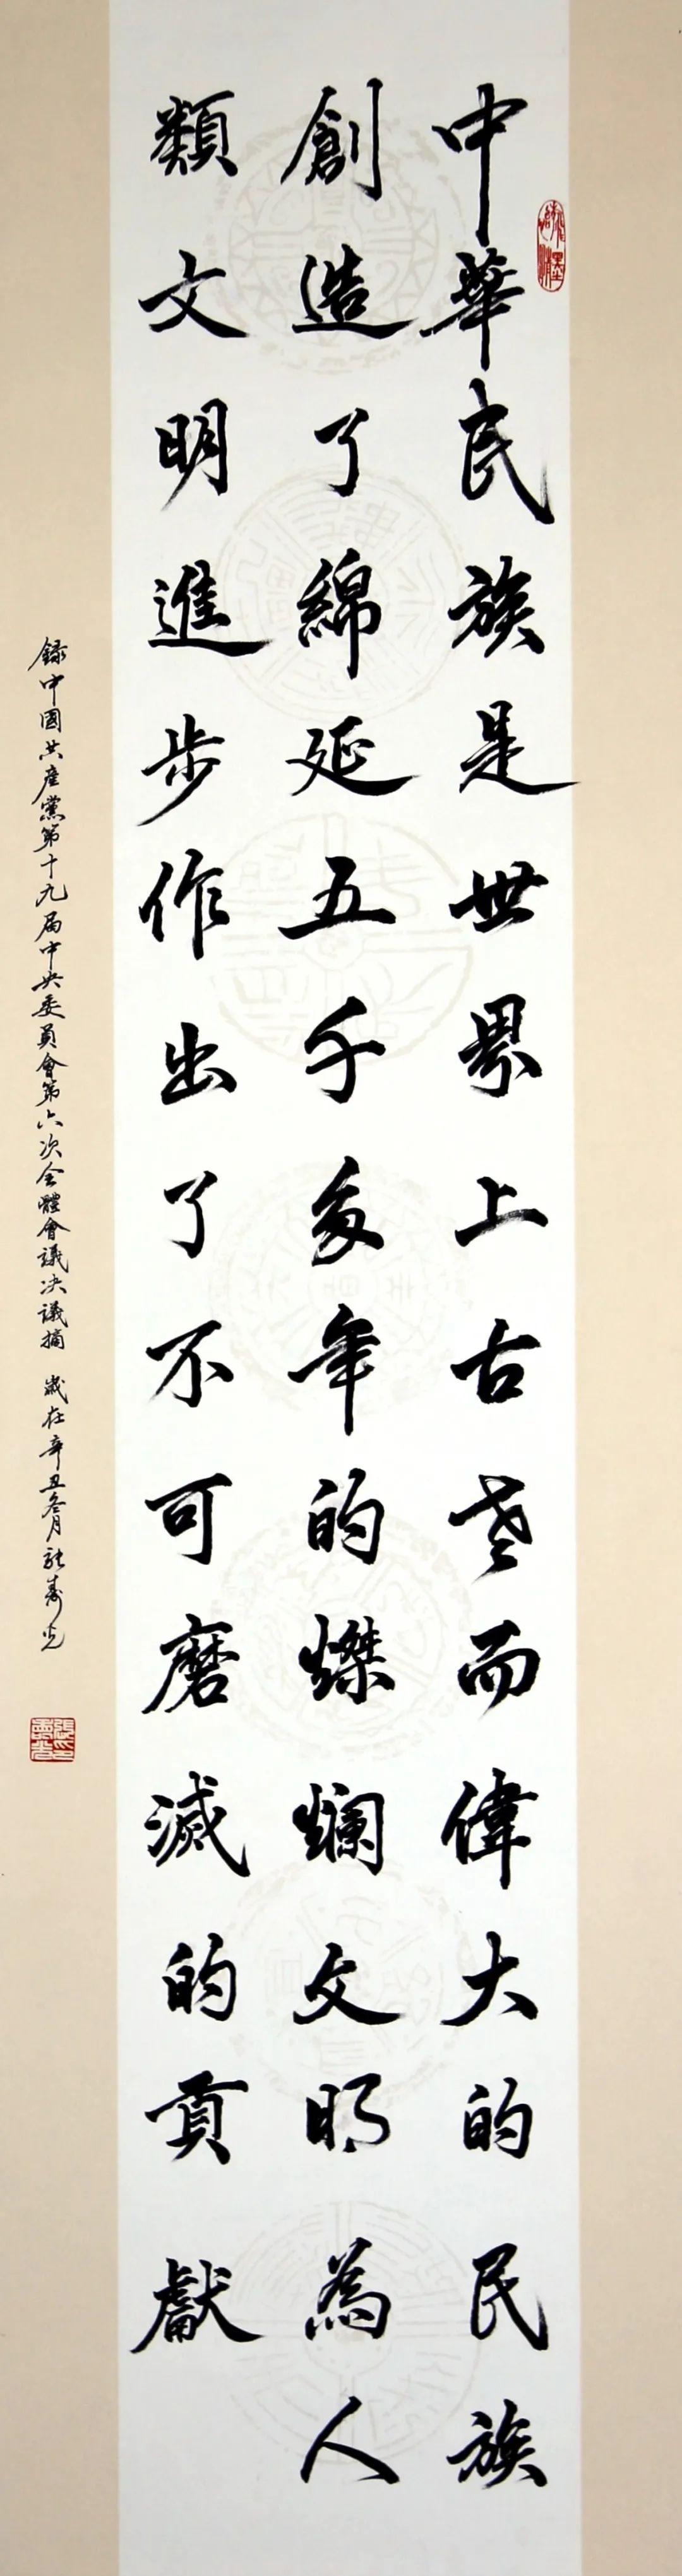 中華民族是世界上古老而偉大的民族
創造了綿延五千多年的燦爛文明為人
類文明進步作出了不可磨滅的貢獻
錄中國共產黨第十九屆中央委員會第六次全體會議決議摘 歲在辛丑冬月張壽光